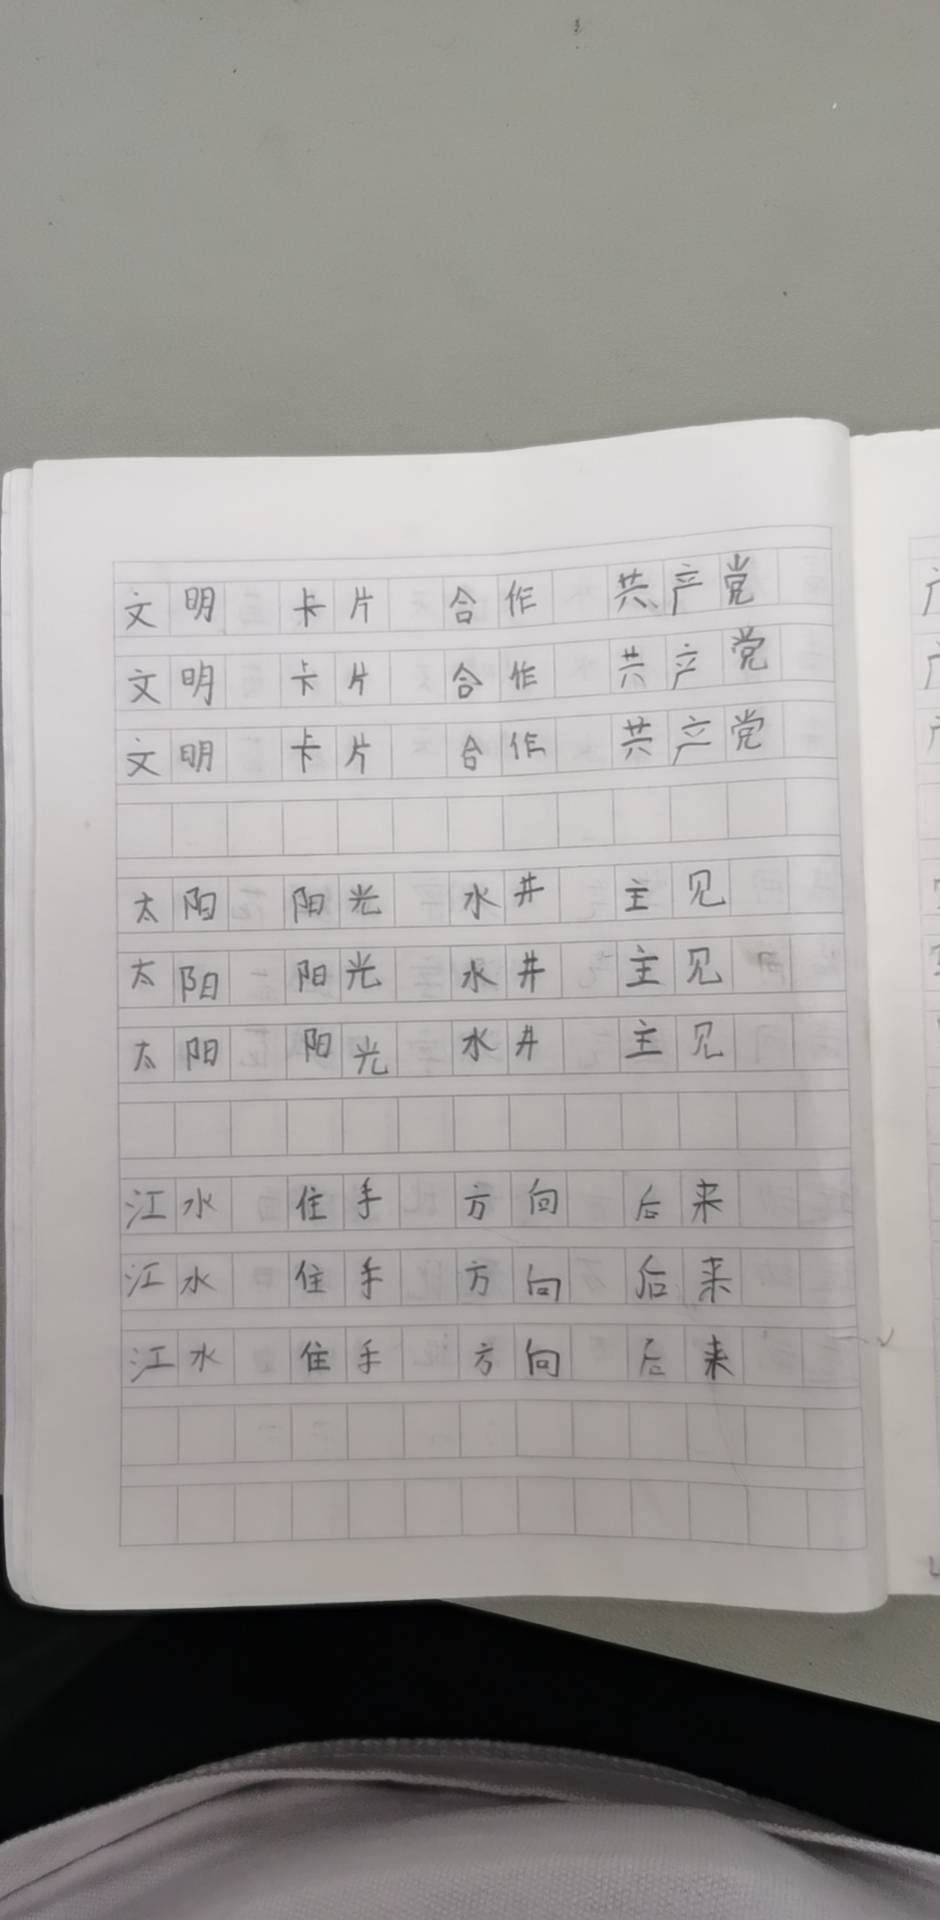 文明 卡片 合作 共产党
文明 卡片 合作 共产党
文明 卡片 合作 共产党
太阳 阳光 水井 主见
太阳 阳光 水井 主见
太阳 阳光 水井 主见
江水 住手 方向 后来
江水 住手 方向 后来
江水 住手 方向 后来